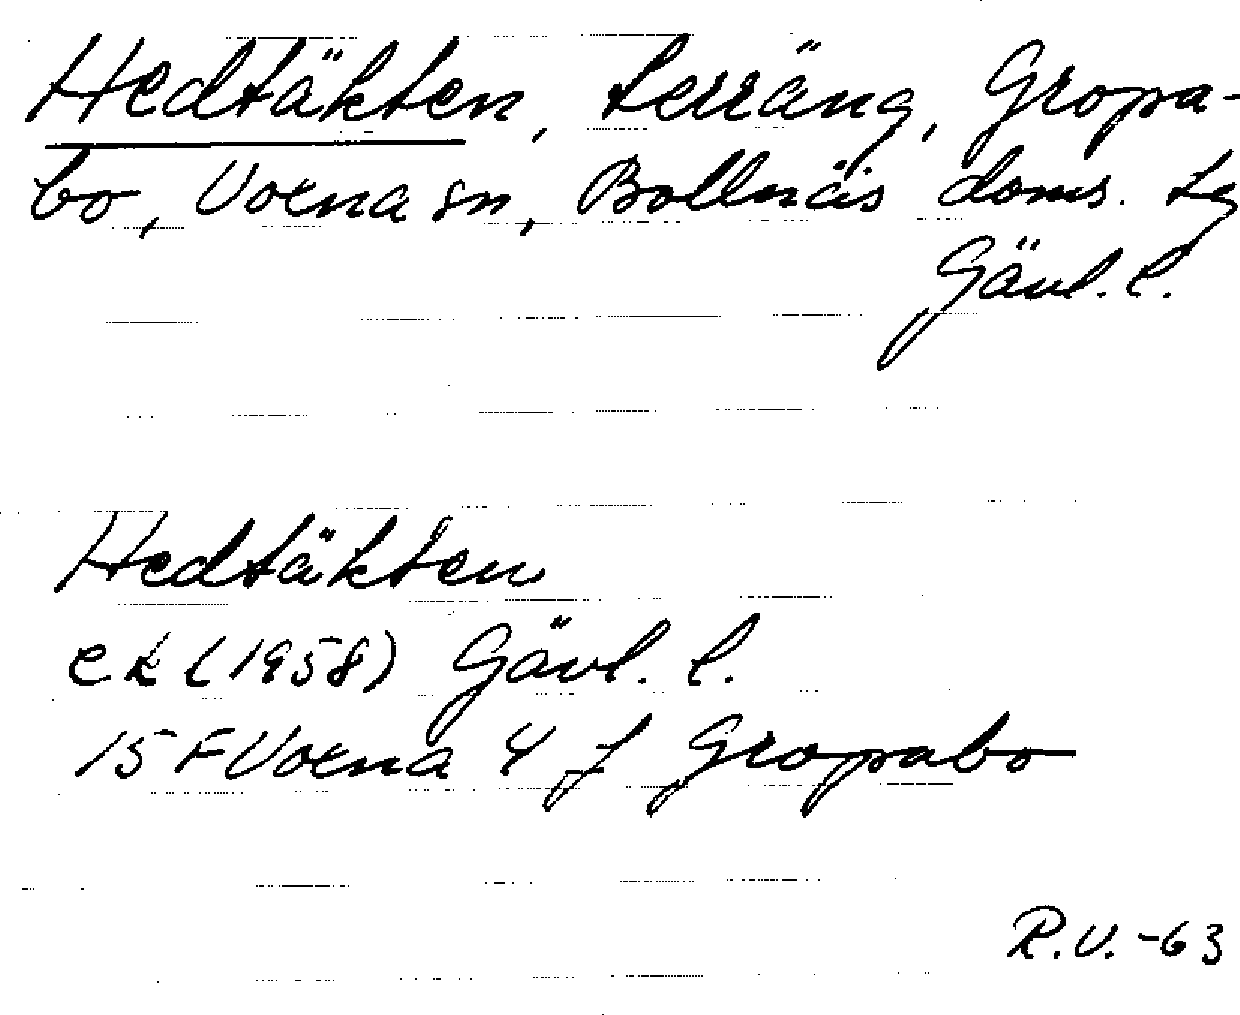 Hedtäkten, terräng, Gropa-
bo, Voxna sn, Bollnäs doms. tg
Gävl. l.
Hedtäkten
ek (1958) Gävl. l.
15 F Voxna 4 f Gropabo
R.V. -63